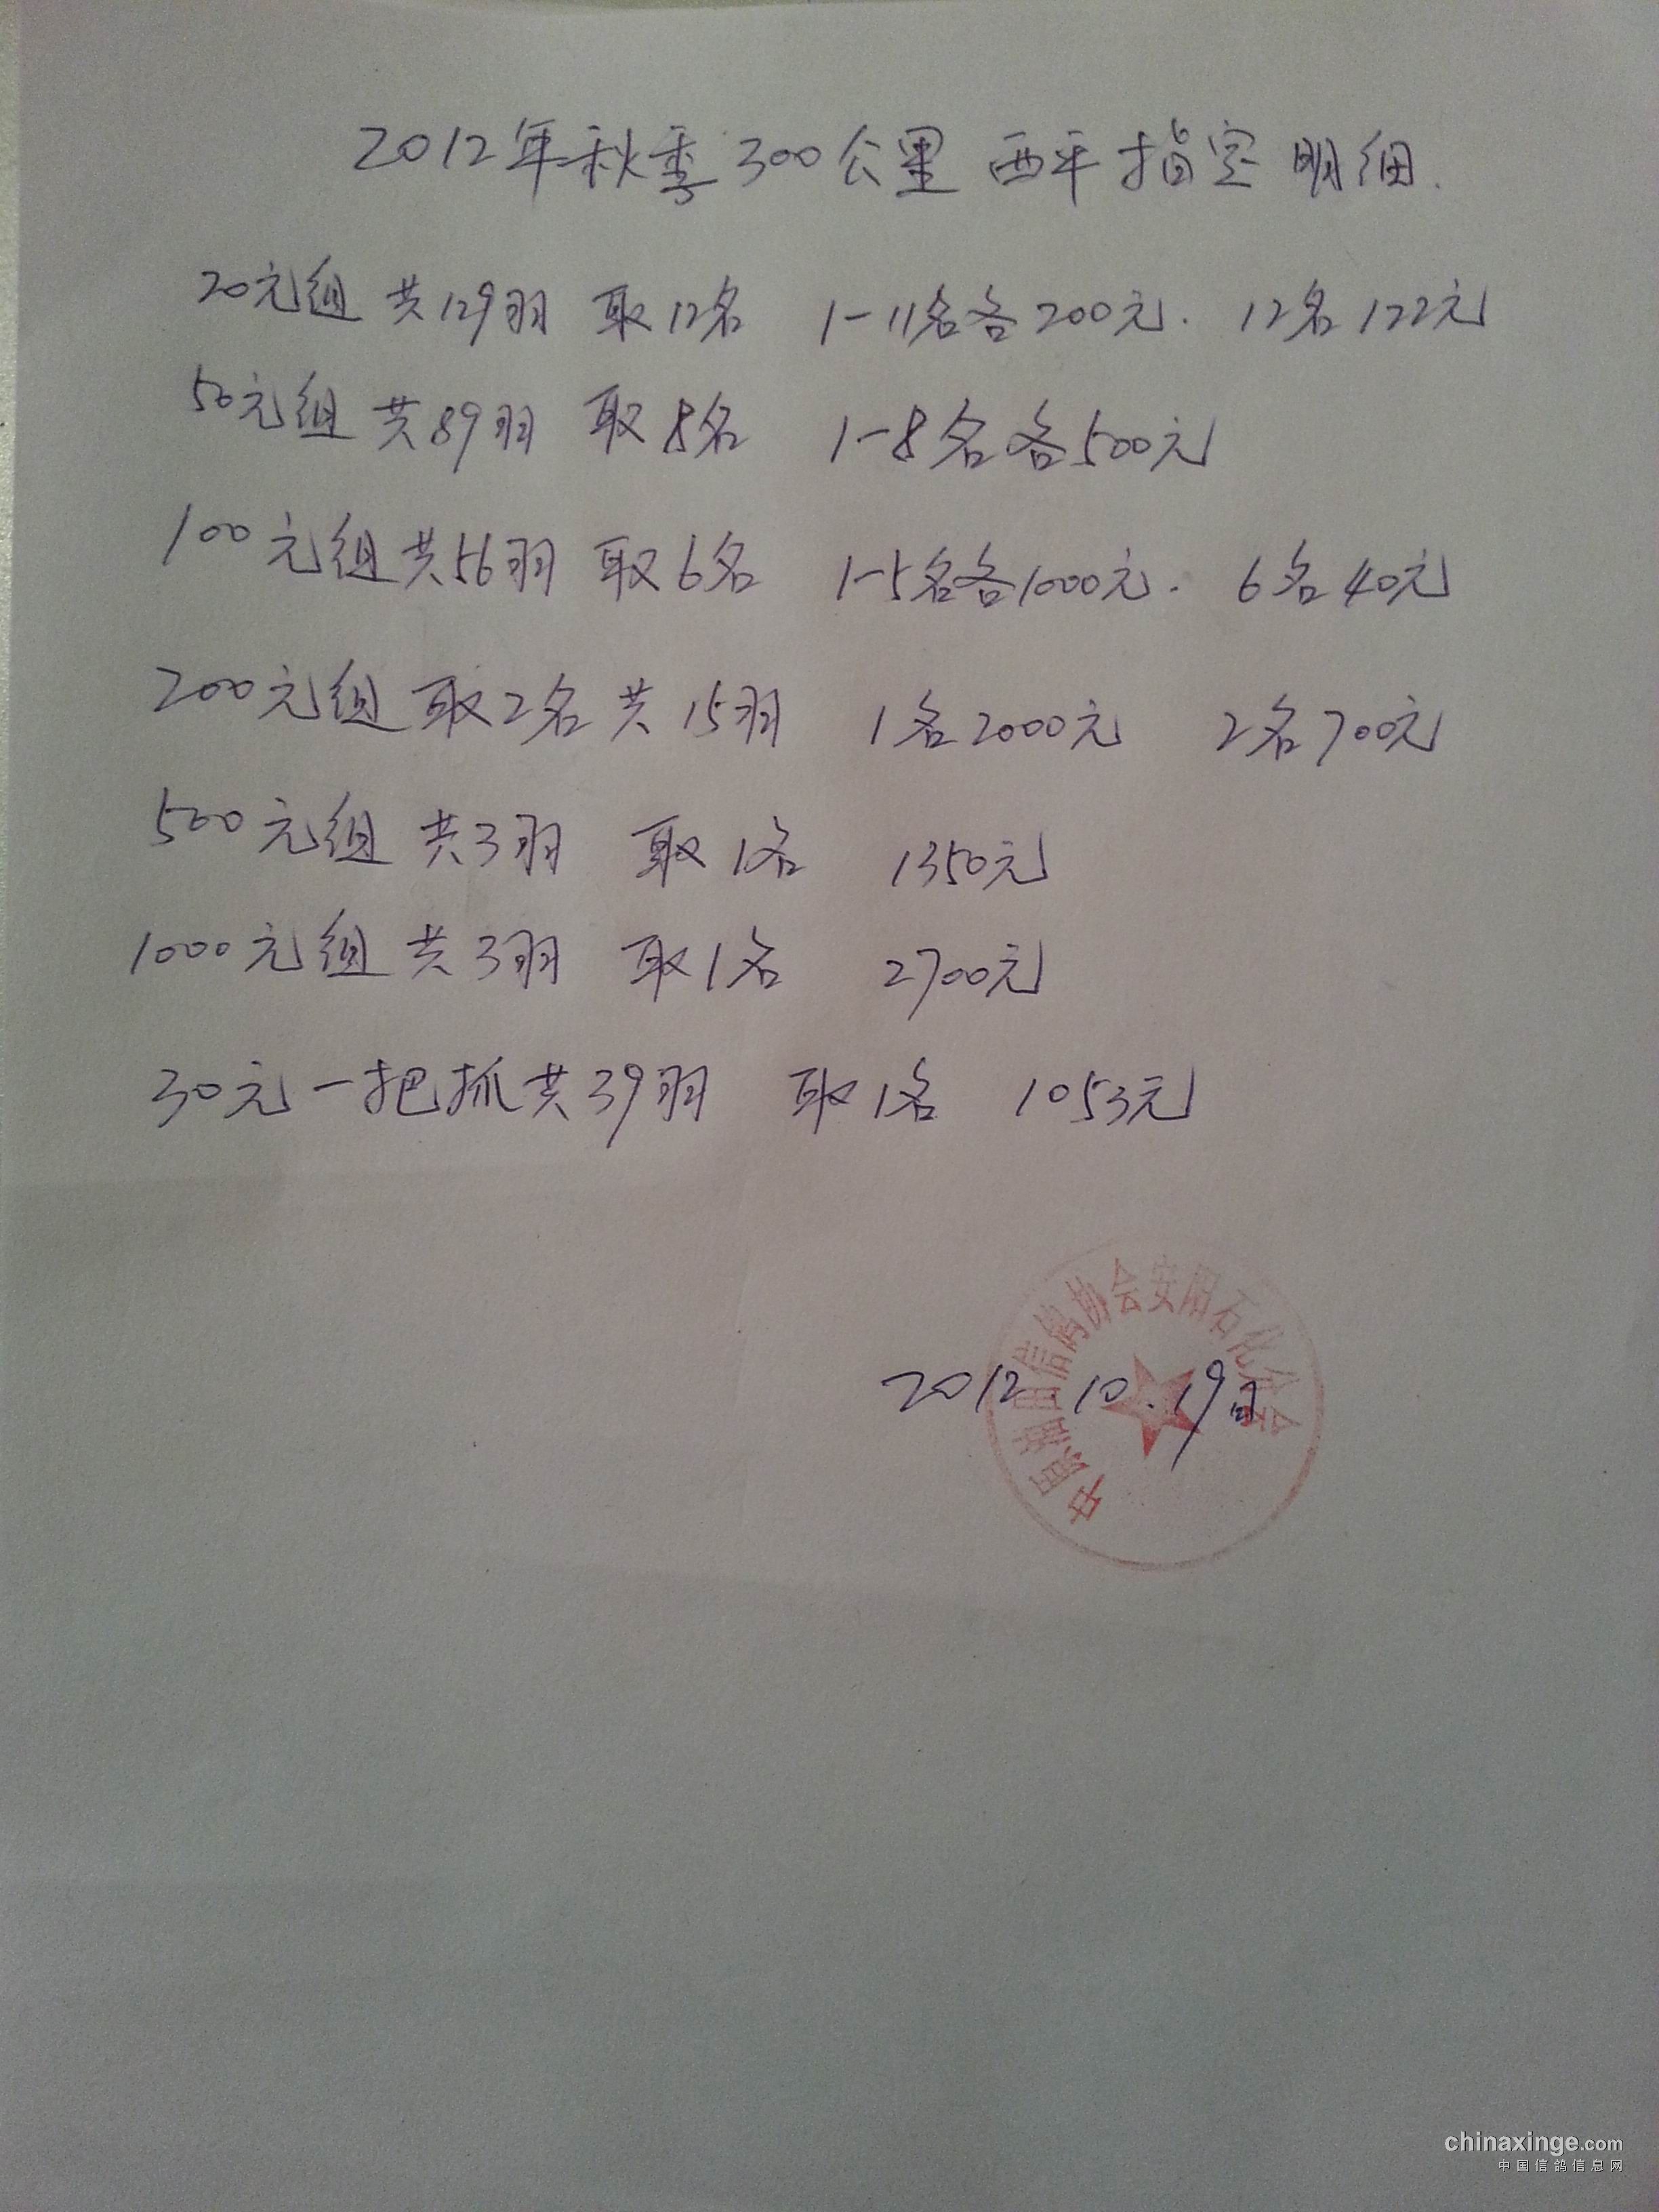 2012年秋季300公里西平指定明细.
20元组 共129羽 取12名 1-11名各200元. 12名122元
50元组 共89羽 取8名 1-8名各500元
100元组共56羽 取6名 1-5名各1000元. 6名40元
200元组 取2名 共15羽 1名2000元 2名700元
500元组 共3羽 取1名 1350元
1000元组 共3羽 取1名 2700元
30元一把抓共39羽 取1名 1053元
中原油田信鸽协会安阳石化分会
2012.10.19日
chinaxinge.com
中国信鸽信息网